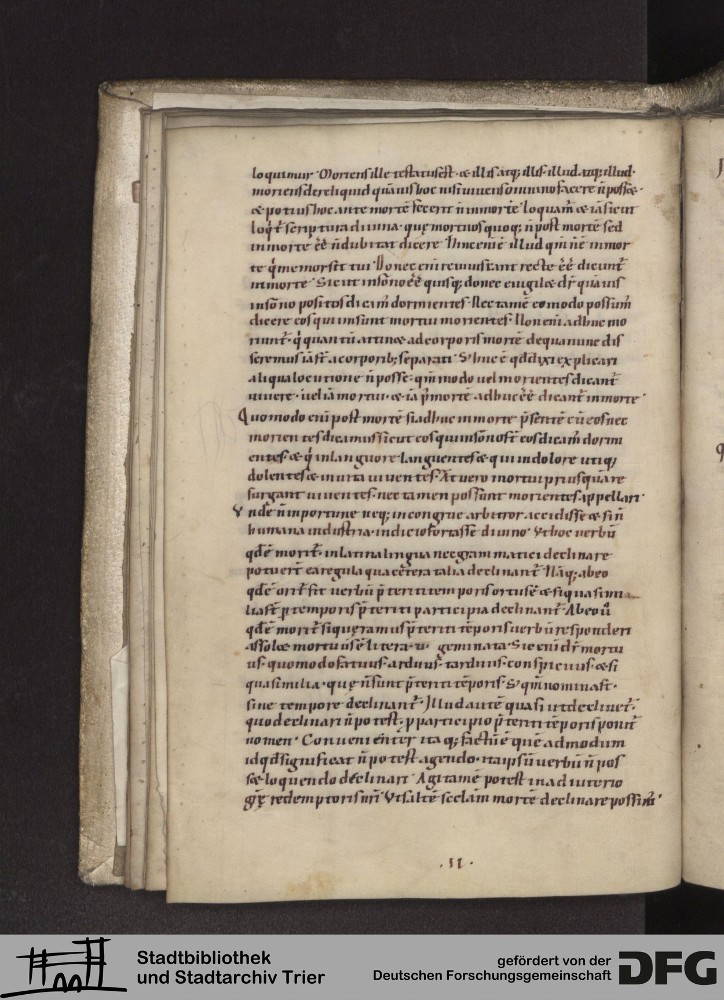 loquimur. Moriens ille testatus est. & illis atq; illis. illud atq; illud.
moriens dereliquid quāuis hoc nisi uiuens omnino facere ñ poss&.
& potius hoc ante mortē fecerit ñ in morte. loquam̄ & iā sicut
loq̇t̄ scriptura diuina. quę mortuos quoq; ñ post mortē sed
in morte ēē ñ dubitat dicere. Hinc eni ē illud qm̄ ñ ē in mor
te q̇ memor sit tui. Donec eni reuiuiscant recte ēē dicunt̄
in morte. Sicut in sōno ēē quisq; donec euigil& dr̄ quāuis
in sōno positos dicam̄ dormientes. Nec tamē eo modo possum̄
dicere eos qui iam sunt mortui morientes. Non eni adhuc mo
riunt̄. q̇ quantū attin& ad corporis mortē de qua nunc dis
seremus iā st̄ a corporib; separati. S; hinc ē qd dixi explicari
aliqua locutione ñ posse. qm̄ modo uel morientes dicant̄
uiuere. uel iā mortui. & iā p̄ mortē adhuc ēē dicant̄ in morte.
Quomodo eni post mortē si adhuc in morte p̄sertē cū eos nec
morientes dicamus sicut eos qui in sōno st̄ eos dicam̄ dormi
entes & q̇ in languore languentes & qui in dolore utiq;
dolentes & in uita uiuentes. At uero mortui priusquā re
surgant uiuentes. nec tamen possunt morientes appellari.
Vnde ñ inportune neq; incongrue arbitror accidisse & si ñ
humana industria. iudicio fortasse diuino. Vt hoc uerbū
qd ē morit̄. in latina lingua nec grammatici declinare
potuert̄ ea regula qua cetera talia declinant̄. Nāq; ab eo
qd ē orit̄ fit uerbū p̄teriti temporis ortus ē & siqua simi
lia st̄ p temporis p̄teriti participia declinant̄. Ab eo ů
qd ē morit̄ si queramus p̄teriti tēporis uerbū responderi
assol& mortuus ē litera .u. geminata. Sic eni dr̄ mortu
us. quomodo fatuus. arduus. tarduus. conspicuus & si
qua similia. quę ñ sunt p̄teriti tēporis. S; qm̄ nomina st̄.
sine tempore declinant̄. Illud autē quasi ut declinet̄.
quod eclinari ñ potest. p participio p̄teriti tēporis ponit̄
nomen. Conuenienter itaq; factū ē quē admodum
id qd significat ñ potest agendo. ita ipsū uerbū ñ pos
s& loquendo declinari. Agi tamē potest in adiutorio
grę redemptoris nr̄i. Vt saltē sc̄dam mortē declinare possim̄.
.II.
Stadtbibliothek
und Stadtarchiv Trier
gefördert von der
Deutschen Forschungsgemeinschaft
DFG